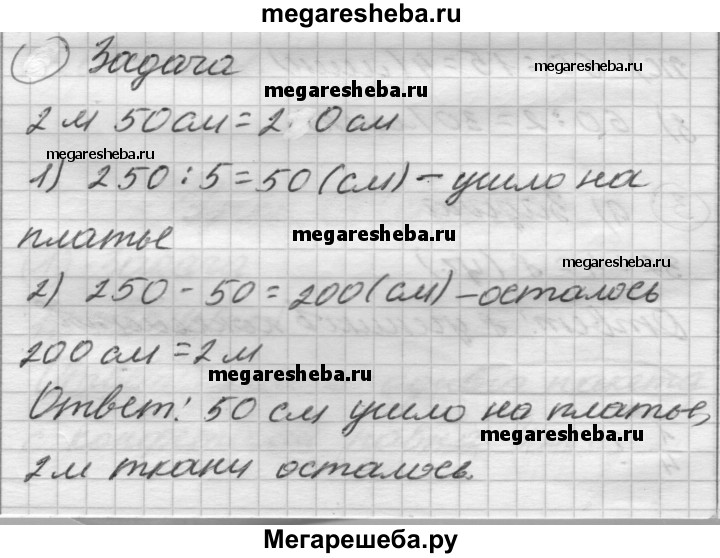 megaresheba.ru
Задача
megaresheba.ru
megaresheba.ru
2 м 50 см = 2 0 см
megaresheba.ru
1) 250 : 5 = 50 (см) – ушло на
megaresheba.ru
платье
megaresheba.ru
2) 250 - 50 = 200 (см) – осталось
200 см = 2 м
megaresheba.ru
Ответ: 50 см ушло на платье,
megaresheba.ru
2 м ткани осталось.
Мегарешеба.ру